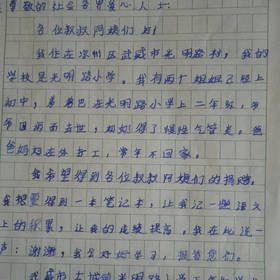 尊敬的社会各界爱心人士:
各位叔叔阿姨们好!
我住在凉州区武威市光明路村,我的
学校是光明路小学。我有两个姐姐已经上
初中,弟弟也在光明路小学上二年级,爷
爷因病而去世,奶奶得了慢性气管炎。爸
爸妈妈在外打工,常年不回家。
我希望得到各位叔叔阿姨们的捐赠,
我想要得到一本笔记本,让我记一些语文
上的积累,让我的成绩提高。我在此说一
声:谢谢,我会好好学习,报答您们。
武威市 光明路小学